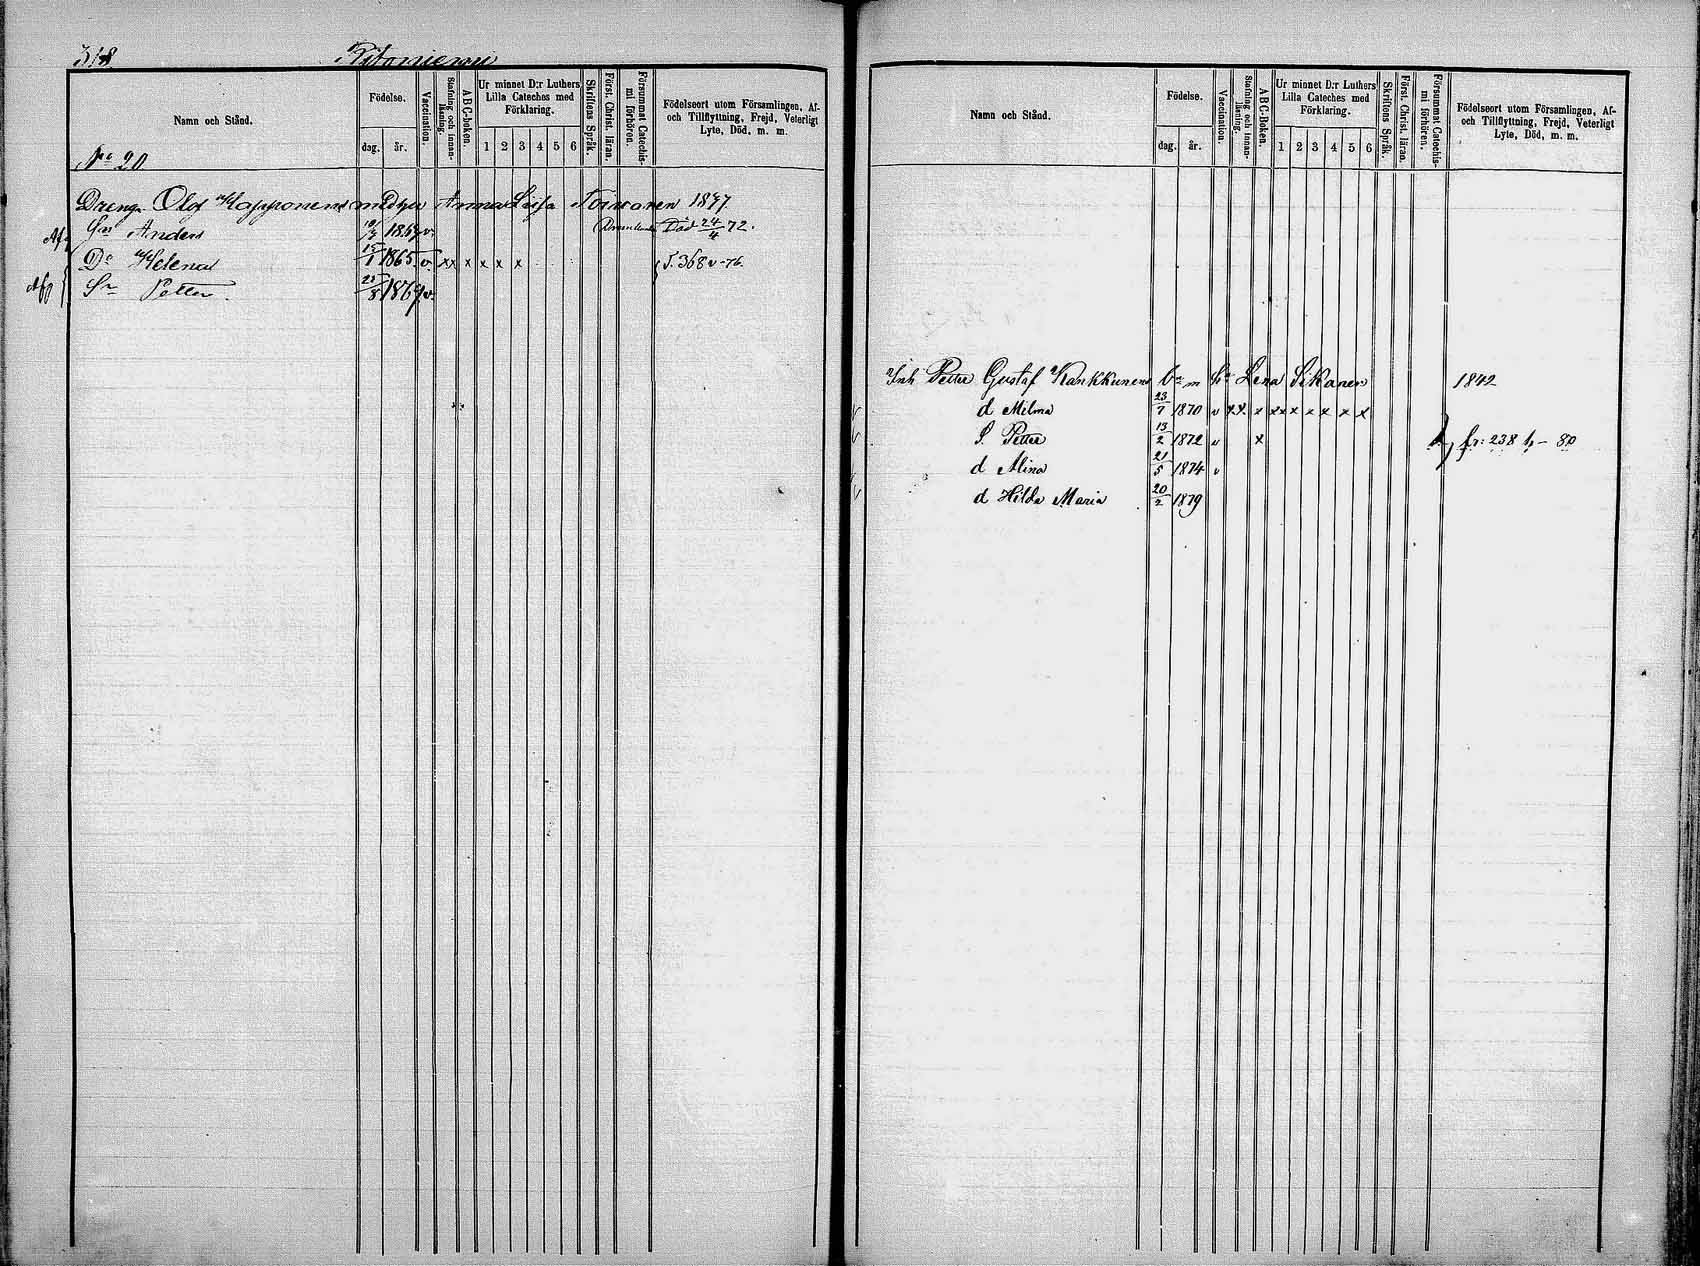 318 Ritoniemi
Namn och Stånd.
Födelse.
dag. år.
Vaccination.
Stafning och Innanläsning.
ABC-boken.
Ur minnet D:r Luthers Lilla Cateches med Förklaring.
1 2 3 4 5 6
Skriftens Språk.
Först. Christ. läran.
Försummat Catechismi förhören.
Födelseort utom Församlingen, Af- och Tillflyttning, Frejd, Veterligt Lyte, Död, m. m.
No 20.
Dreng. Olof Kapponens med h. Anna Lisa Toivanen 1837.
Af. Sn Anders 1859 v. Död 24/4 72.
Dr Helena 15/1 1865. v. xx x x x x S. 368 v-76.
Afg Sn Petter. 25/8 1867 v.
Namn och Stånd.
Födelse.
dag. år.
Vaccination.
Stafning och Innanläsning.
ABC-boken.
Ur minnet D:r Luthers Lilla Cateches med Förklaring.
1 2 3 4 5 6
Skriftens Språk.
Först. Christ. läran.
Försummat Catechismi förhören.
Födelseort utom Församlingen, Af- och Tillflyttning, Frejd, Veterligt Lyte, Död, m. m.
Inh Petter Gustaf Kankkunens bn m h. Lena Sikanen 1842
d Milma 23/7 1870 v x x x x x x x x x x
S. Petter 13/2 1872 v x fr: 238 h - 80
d Alina 21/5 1874 v
d Hilda Maria 20/2 1879